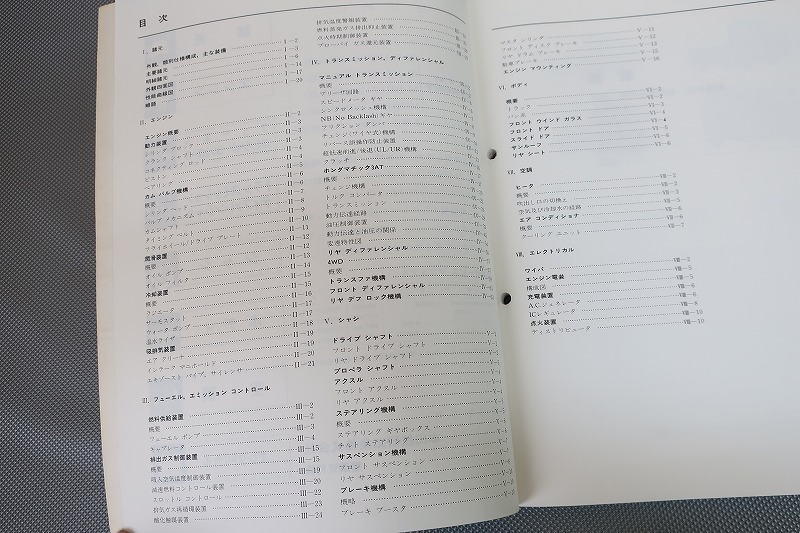 目 次
I. 諸元
外観, 類別仕様構成, 主な装備 I-2
主要諸元 I-6
明細諸元 I-14
外観四面図 I-17
性能曲線図 I-20
II. エンジン
エンジン概要 II-2
動力装置 II-3
シリンダ ブロック II-3
クランク シャフト II-3
コネクティング ロッド II-4
ピストン II-4
ベアリング II-5
カム バルブ機構 II-6
概要 II-6
シリンダ ヘッド II-7
バルブ メカニズム II-8
カムシャフト II-9
タイミング ベルト II-10
フライホイール/ドライブ プレート II-11
潤滑装置 II-12
概要 II-12
オイル ポンプ II-13
オイル フィルタ II-14
冷却装置 II-15
概要 II-15
ラジエータ II-16
サーモスタット II-17
ウォータ ポンプ II-17
温水ライザ II-18
吸排気装置 II-19
エア クリーナ II-19
インテーク マニホールド II-20
エキゾースト パイプ, サイレンサ II-21
III. フューエル, エミッション コントロール
燃料供給装置 III-2
概要 III-2
フューエル ポンプ III-3
キャブレータ III-4
排出ガス制御装置 III-15
概要 III-15
吸入空気温度制御装置 III-19
減速燃料コントロール装置 III-20
スロットル コントロール III-22
排気ガス再循環装置 III-23
酸化触媒装置 III-24
排気温度警報装置
燃料蒸発ガス排出抑止装置
点火時期制御装置
ブローバイ ガス還元装置
IV. トランスミッション, ディファレンシャル
マニュアル トランスミッション
概要
ブリーザ回路
スピードメータ ギヤ
シンクロメッシュ機構
NB(No Backlash)ギヤ
フリクション ダンパ
チェンジ(ワイヤ式)機構
リバース誤操作防止装置
超低速前進/後退(UL/UR)機構
クラッチ
ホンダマチック3AT
概要
チェンジ機構
トルク コンバータ
トランスミッション
動力伝達経路
油圧制御装置
動力伝達と油圧の関係
変速特性図
リヤ ディファレンシャル
4WD
概要
トランスファ機構
フロント ディファレンシャル
リヤ デフ ロック機構
V. シャシ
ドライブ シャフト
フロント ドライブ シャフト
リヤ ドライブ シャフト
プロペラ シャフト
アクスル
フロント アクスル
リヤ アクスル
ステアリング機構
概要
ステアリング ギヤボックス
チルト ステアリング
サスペンション機構
フロント サスペンション
リヤ サスペンション
ブレーキ機構
概略
ブレーキ ブースタ
マスタ シリンダ V-11
フロント ディスク ブレーキ V-12
リヤ ドラム ブレーキ V-13
駐車ブレーキ V-15
エンジン マウンティング V-16
VI. ボディ
概要 VI-2
トラック VI-2
バン系 VI-3
フロント ウインド ガラス VI-4
フロント ドア VI-4
スライド ドア VI-5
サンルーフ VI-6
リヤ シート VI-6
VII. 空調
ヒータ VII-2
概要 VII-2
吹出し口の切換え VII-3
空気及び冷却水の経路 VII-5
エア コンディショナ VII-6
概要 VII-6
クーリング ユニット VII-7
VIII. エレクトリカル
ワイパ VIII-2
エンジン電装 VIII-5
構成図 VIII-5
充電装置 VIII-6
A.C.ジェネレータ VIII-6
ICレギュレータ VIII-8
点火装置 VIII-10
ディストリビュータ VIII-10